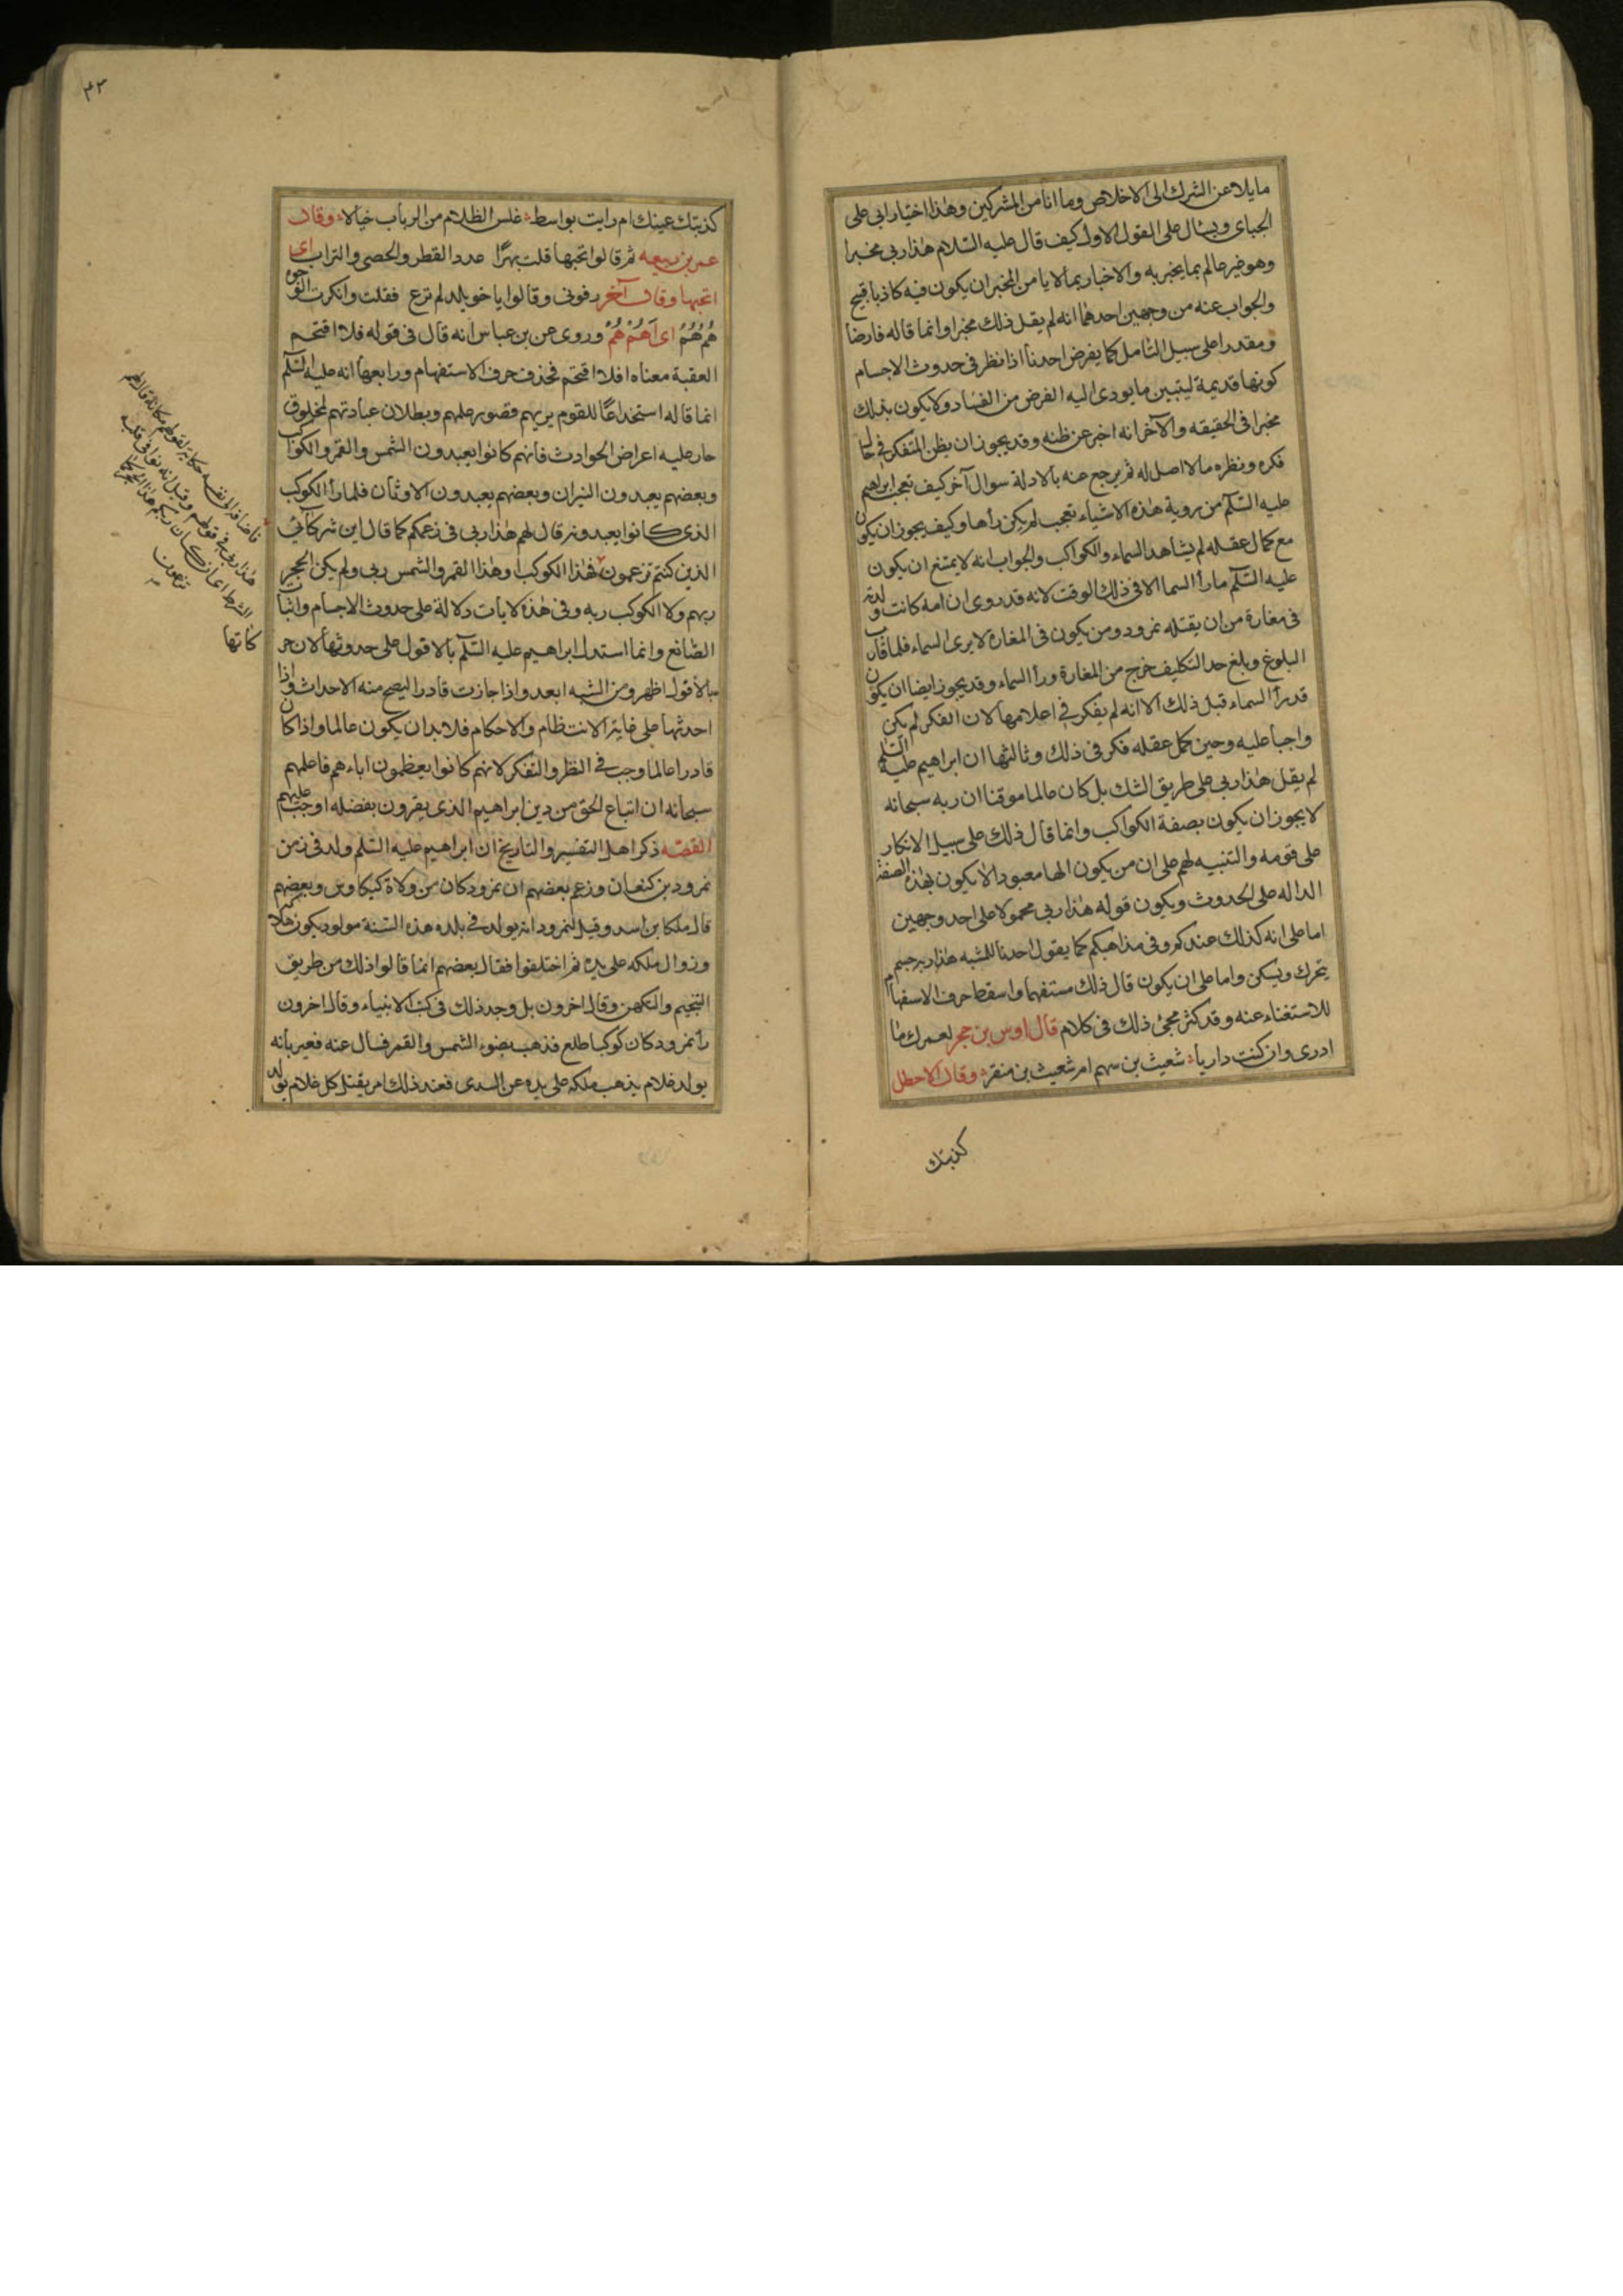 مايلا عن الشرك الى الاخلاص وما انا من المشركين وهذا اختيار ابى على
الجباى ويسال على القول الاول كيف قال عليه السلام هذا ربى مخبرا
وهو غير عالم بما يخبر به والاخبار بما لا يامن المخبر ان يكون فيه كاذبا قبيح
والجواب عنه من وجهين احدهما انه لم يقل ذلك مخبرا وانما قاله فارضا
ومقدرا على سبيل التامل كما يفرض احدنا اذا نظر فى حدوث الاجسام
كونها قديمة ليتبين ما يودى اليه الفرض من الفساد ولا يكون بذلك
مخبرا فى الحقيقه والآخر انه اخبر عن ظنه وقد يجوز ان يظن المتفكر فى حال
فكره ونظره ما لا اصل له ثم يرجع عنه بالادلة سوال آخر كيف تعجب ابراهيم
عليه السلم من روية هذه الاشياء تعجب لم يكن رأها وكيف يجوز ان يكون
مع كمال عقله لم يشاهد السماء والكواكب والجواب انه لا يمتنع ان يكون
عليه السلم ما رأ السما الا فى ذلك الوقت لانه قد روى ان امه كانت ولدته
فى مغارة من ان يقتله نمرود ومن يكون فى المغارة لا يرى السماء فلما قارب
البلوغ وبلغ حد التكليف خرج من المغارة ورأ السماء وقد يجوز ايضا ان يكون
قد رأ السماء قبل ذلك الا انه لم يفكر فى اعلامها لان الفكر لم يكن
واجبا عليه وحين كمل عقله فكر فى ذلك وثالثها ان ابراهيم عليه السلم
لم يقل هذا ربى على طريق الشك بل كان عالما موقنا ان ربه سبحانه
لا يجوز ان يكون بصفة الكواكب وانما قال ذلك على سبيل الانكار
على قومه والتنبيه لهم على ان من يكون الها معبودا لا يكون بهذه الصفة
الداله على الحدوث ويكون قوله هذا ربى محمولا على احد وجهين
اما على انه كذلك عندكم وفى مذاهبكم كما يقول احدنا للمشبه هذا ربه جسم
يتحرك ويسكن واما على ان يكون قال ذلك مستفهما واسقط حرف الاستفهام
للاستغناء عنه وقد كثر مجئ ذلك فى كلام قال اوس بن حجر لعمرك ما
ادرى وان كنت داريا شعيث بن سهم ام شعيث بن منقر وقال الاخطل
كذبتك
٤٢
كذبتك عينك ام رايت بواسط غلس الظلام من الرباب خيالا وقال
عمر بن ربيعه ثم قالوا تحبها قلت بهرًا عدد القطر والحصى والتراب اى
اتحبها وقال آخر رفونى وقالوا يا خويلد لم ترع فقلت وانكرت الوجوه
هُم هُم اى اهُم هُم وروى عن بن عباس انه قال فى قوله فلا اقتحم
العقبة معناه افلا اقتحم فحذف حرف الاستفهام ورابعها انه عليه السلم
انما قاله استخداعًا للقوم يريهم قصور علمهم وبطلان عبادتهم لمخلوق
جار عليه اعراض الحوادث فانهم كانوا يعبدون الشمس والقمر والكواكب
وبعضهم يعبدون النيران وبعضهم يعبدون الاوثان فلما رأ الكوكب
الذى كانوا يعبدونه قال لهم هذا ربى فى زعمكم كما قال اين شركائى
الذين كنتم تزعمون فهذا الكوكب وهذا القمر والشمس ربى ولم يكن الحجر
ربهم ولا الكوكب ربه وفى هذه الايات دلالة على حدوث الاجسام واثبات
الصانع وانما استدل ابراهيم عليه السلم بالافول على حدوثها لان حر
بالافول اظهر ومن الشبه ابعد واذا جازت قادرا ليصح منه الاحداث واذا
احدثها على غاية الانتظام والاحكام فلا بد ان يكون عالما واذا كان
قادرا عالما وجب فى النظر والتفكر لانهم كانوا يعظمون اباءهم فاعلمهم
سبحانه ان اتباع الحق من دين ابراهيم الذى يقرون بفضله اوجب عليهم
القصّه ذكر اهل التفسير والتاريخ ان ابراهيم عليه السلم ولد فى زمن
نمرود بن كنعان وزعم بعضهم ان نمرود كان من ولاة كيكاوس وبعضهم
قال ملكا براسه وقيل لنمرود انه يولد فى بلده هذه السنة مولود يكون هلاكهم
وزوال ملكه على يده ثم اختلفوا فقال بعضهم انما قالوا ذلك من طريق
التنجيم والتكهن وقال اخرون بل وجد ذلك فى كتب الانبياء وقال اخرون
رأ نمرود كان كوكبا طلع فذهب بضوء الشمس والقمر فسال عنه فعبر بانه
يولد غلام يذهب ملكه على يده عن السدى فعند ذلك امر بقتل كل غلام يولد
هذا ربى فى قولهم وقيل انه نوى فى قلبه
تزعمون